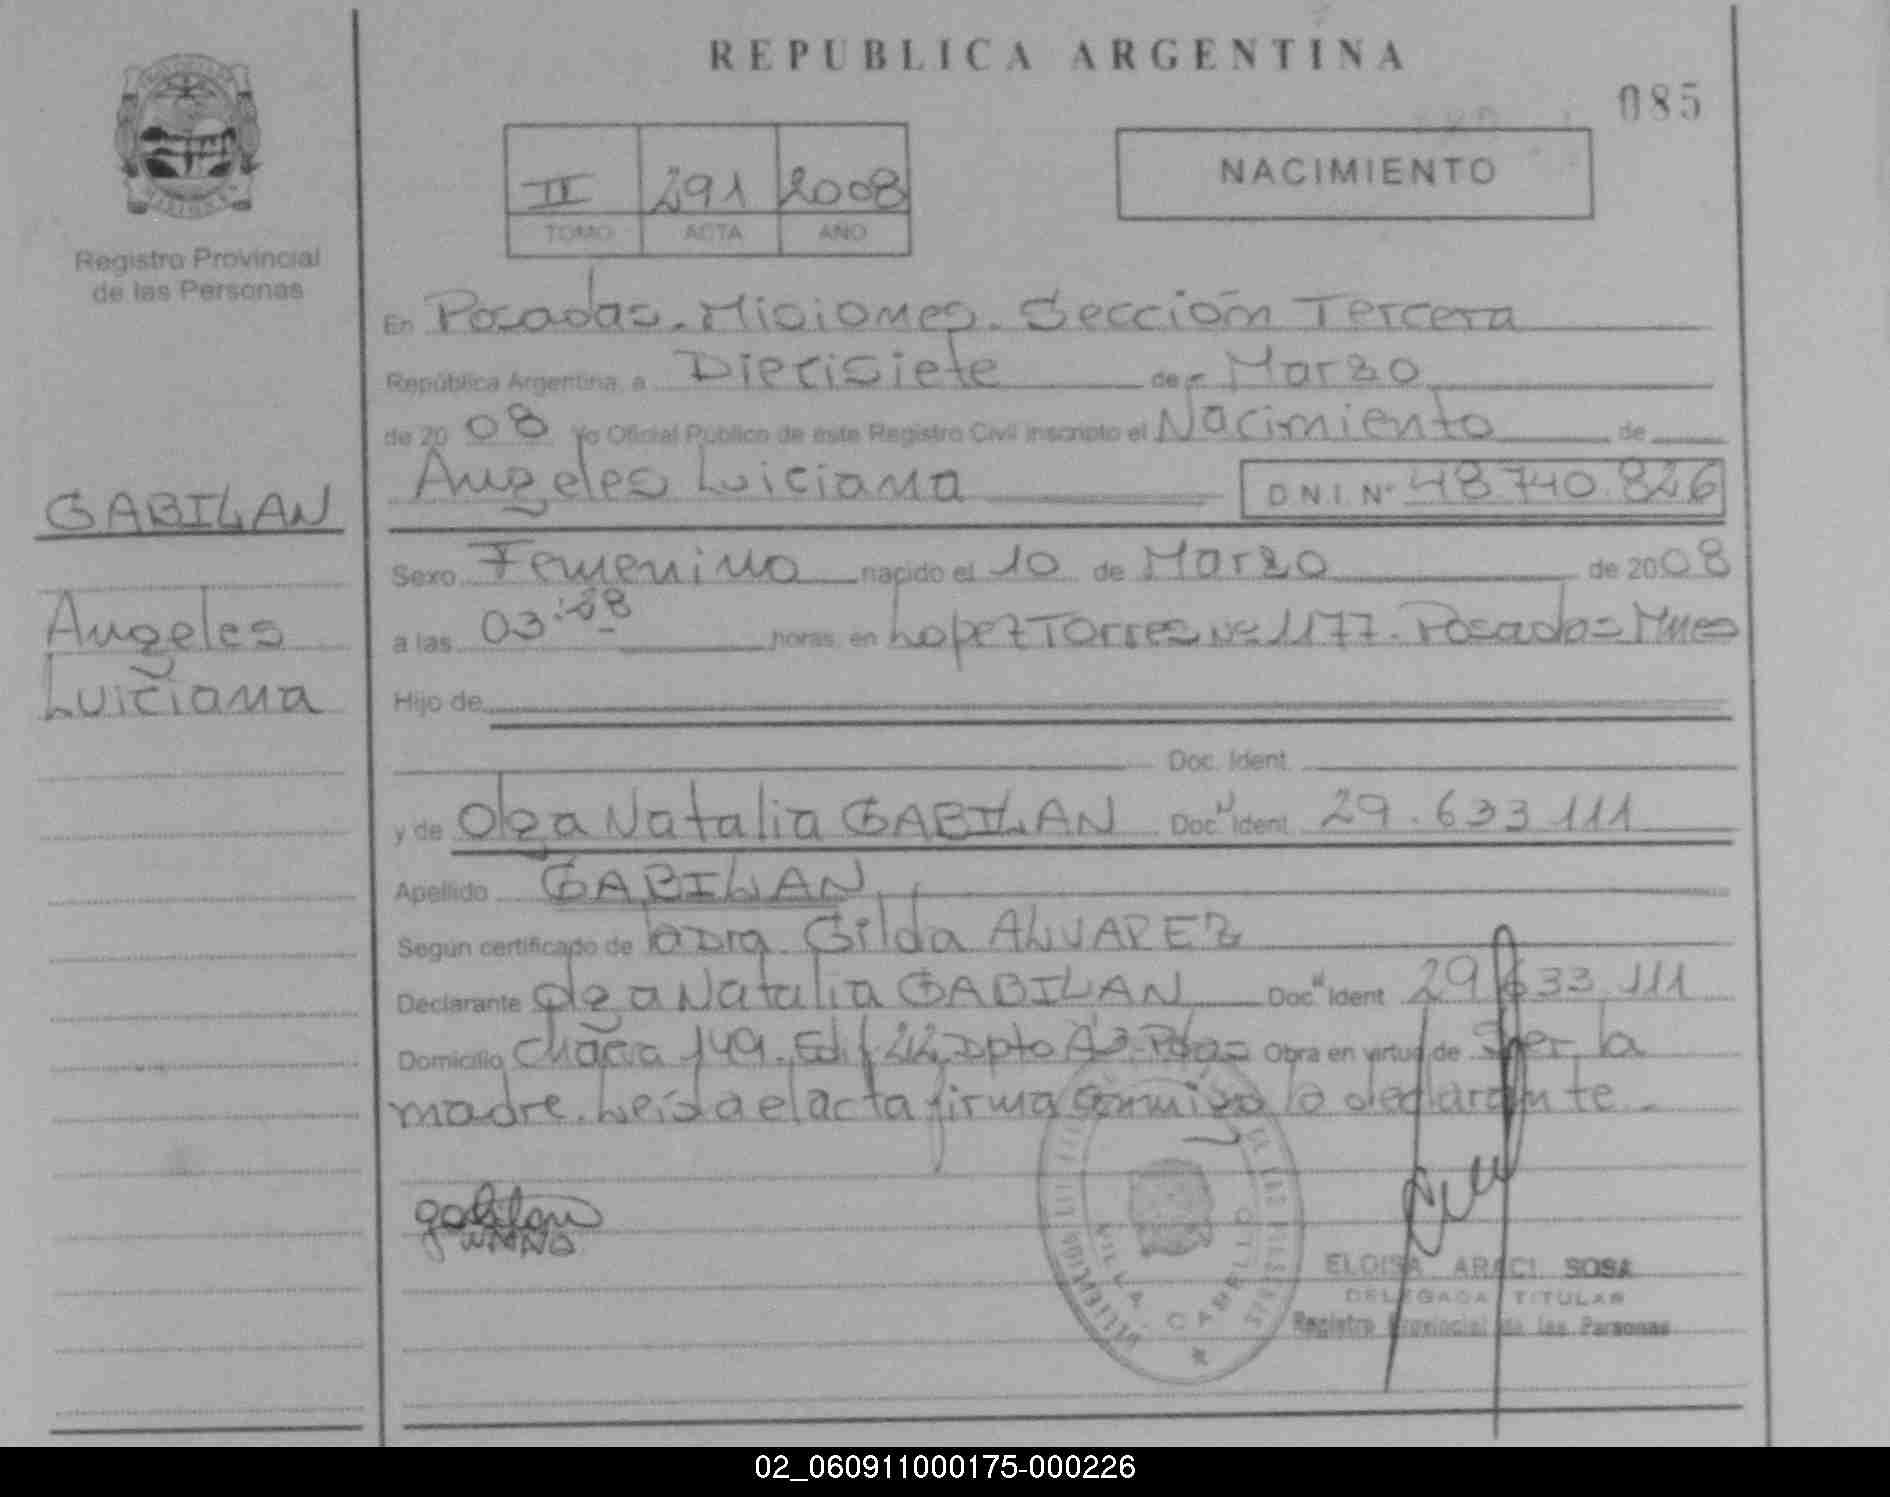 REPUBLICA ARGENTINA
085
II 291 2008
TOMO ACTA AÑO
NACIMIENTO
Registro Provincial
de las Personas
En Posadas. Misiones. Sección Tercera
República Argentina, a Diecisiete de Marzo
de 2008 Yo Oficial Público de este Registro Civil inscripto el Nacimiento de
Angeles Luiciana D.N.I. Nº 48.740.826
GABILAN
Angeles
Luiciana
Sexo Femenino nacido el 10 de Marzo de 2008
a las 03:28 horas, en Lopez Torres Nº 1177. Posadas Mnes
Hijo de
Doc. Ident.
y de Olga Natalia GABILAN Doc. Ident 29.633.111
Apellido GABILAN
Según certificado de la Dra. Gilda ALVAREZ
Declarante Olga Natalia GABILAN Doc. Ident 29.633.111
Domicilio Chacra 149. Edif Dpto Pdas Obra en virtud de Ser la
madre. Leída el acta firma conmigo la declarante.
gabilan
VILLA CABELLO
ELOISA ARACI SOSA
DELEGADA TITULAR
Registro Provincial de las Personas
02_060911000175-000226